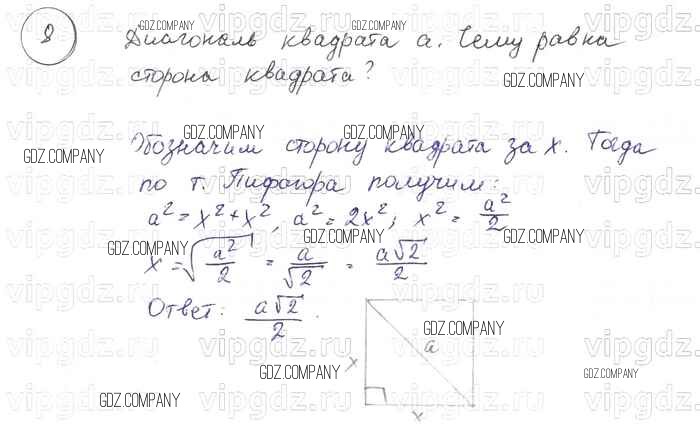 8
Диагональ квадрата a. Чему равна
сторона квадрата?
Обозначим сторону квадрата за x. Тогда
по т. Пифагора получим:
a² = x² + x², a² = 2x²; x² = a²/2
x = √(a²/2) = a/√2 = a√2/2
Ответ: a√2/2.
a
x
x
GDZ.COMPANY
vipgdz.ru